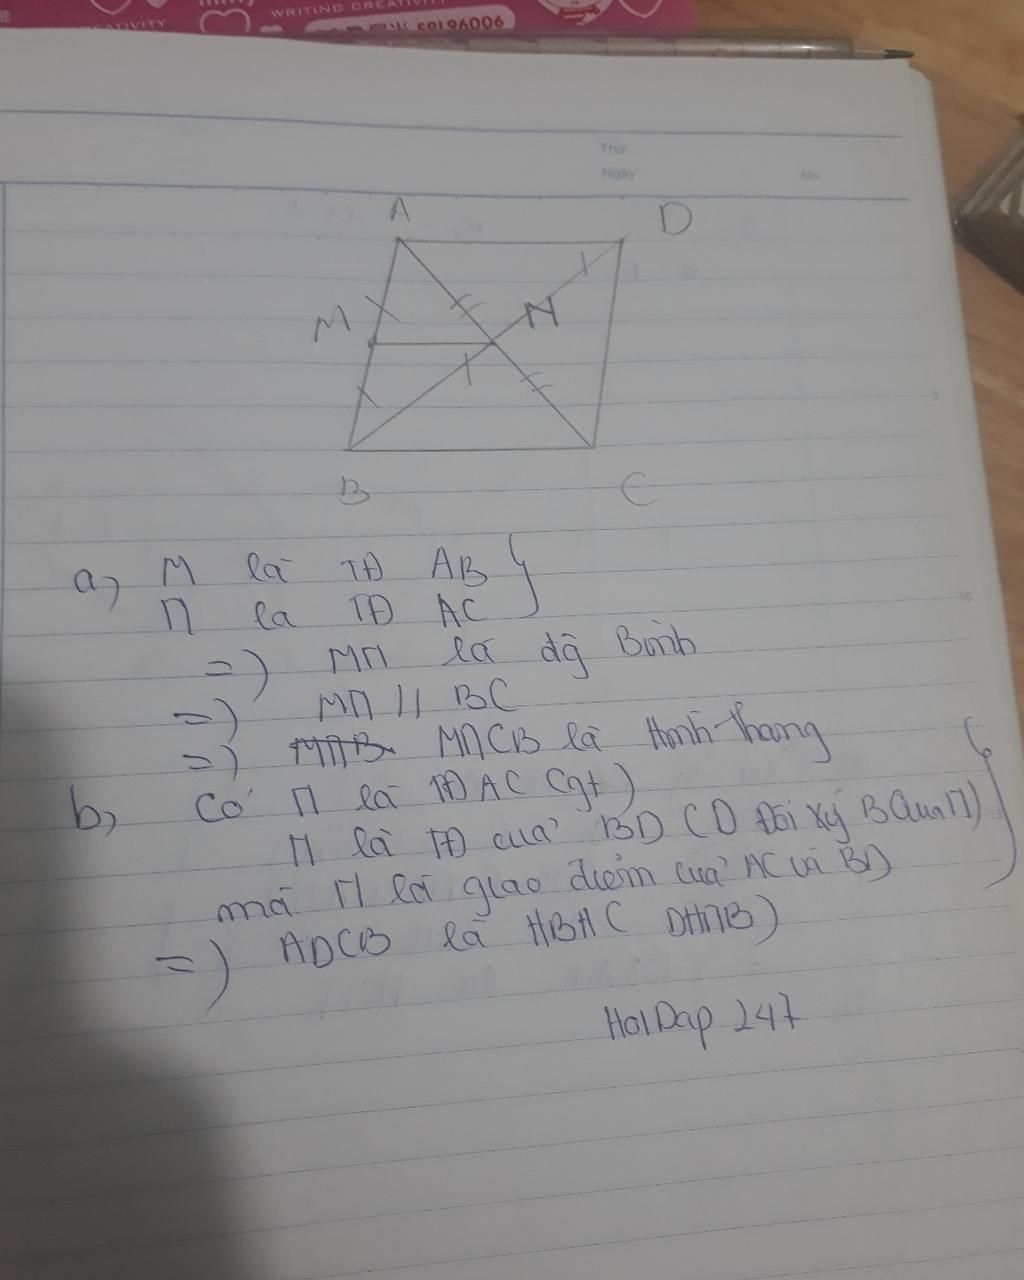 WRITING CREATIVITY
Thứ
Ngày No
A D
M N
B C
a, M là TĐ AB }
N la TĐ AC
=) MN là đg Bình
=) MN // BC
=) MNCB là Hình thang
b, Có N là TĐ AC (gt)
N là TĐ của BD (D Đối xý B Qua N)
mà N là giao điểm của AC và BD
=) ADCB là HBH ( DHNB)
HoiDap 247